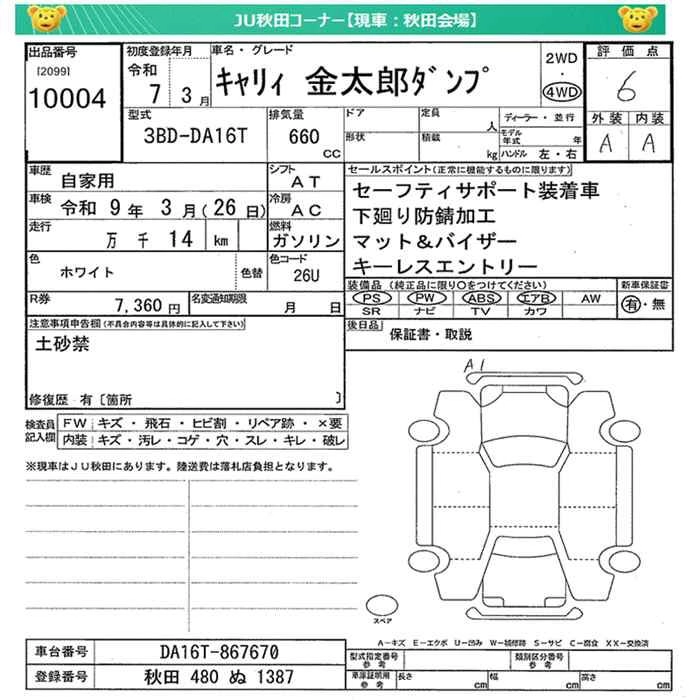 JU秋田コーナー【現車：秋田会場】
出品番号
[2099]
10004
初度登録年月
令和
7 3月
車名・グレード
キャリィ 金太郎ダンプ
2WD
・
4WD
評価点
6
外装 内装
A A
型式
3BD-DA16T
排気量
660
CC
ドア
形状
定員
人
積載
kg
ディーラー・並行
モデル年式 年
ハンドル 左・右
車歴
自家用
シフト
AT
車検
令和 9年 3月(26日)
冷房
AC
走行
万 千 14 km
燃料
ガソリン
色
ホワイト
色替
色コード
26U
R券
7,360円
名変通知期限
月 日
セールスポイント(正常に機能するものに限ります)
セーフティサポート装着車
下廻り防錆加工
マット&バイザー
キーレスエントリー
装備品 (純正品に限り○をつけてください)
PS PW ABS エアB AW
SR ナビ TV カワ
新車保証書
有・無
後日品
保証書・取説
注意事項申告欄(不具合内容等は具体的に記入して下さい)
土砂禁
修復歴 有〔箇所 〕
検査員記入欄
FW キズ・飛石・ヒビ割・リペア跡・×要
内装 キズ・汚レ・コゲ・穴・スレ・キレ・破レ
※現車はJU秋田にあります。陸送費は落札店負担となります。
A1
スペア
A−キズ E−エクボ U−凹み W−補修跡 S−サビ C−腐食 XX−交換済
車台番号
DA16T-867670
登録番号
秋田 480 ぬ 1387
型式指定番号
参考
類別区分番号
参考
車庫証明用
参考
長さ cm
幅 cm
高さ cm